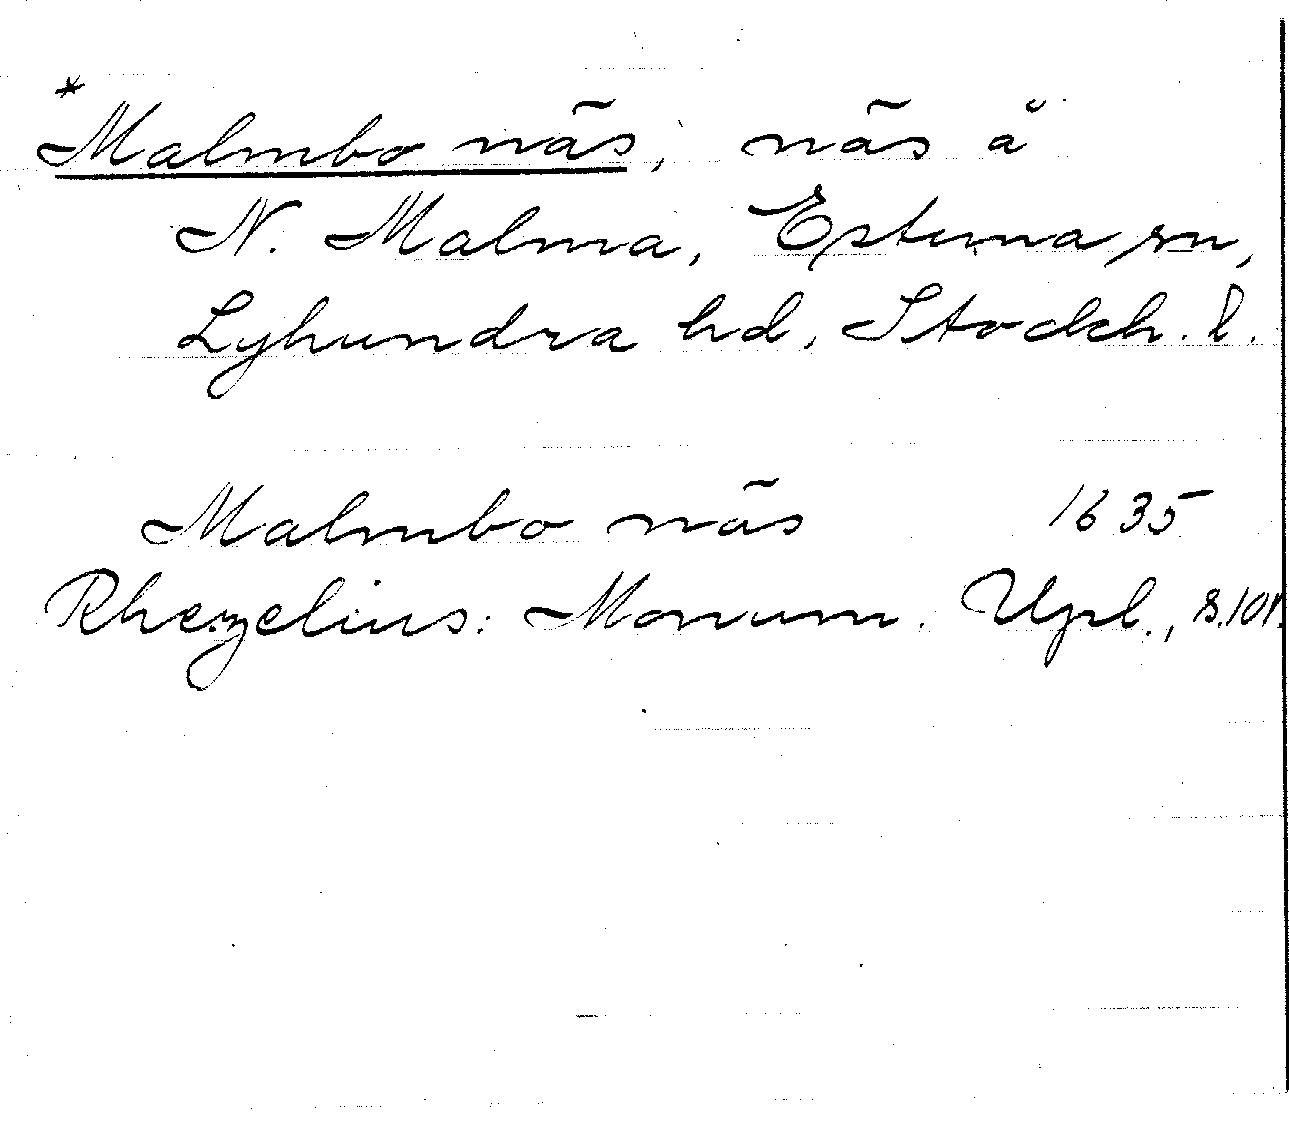 *
Malmbo näs, näs å
N. Malma, Estuna sn,
Lyhundra hd, Stockh. l.
Malmbo näs 1635
Rhezelius: Monum. Upl., s.101.